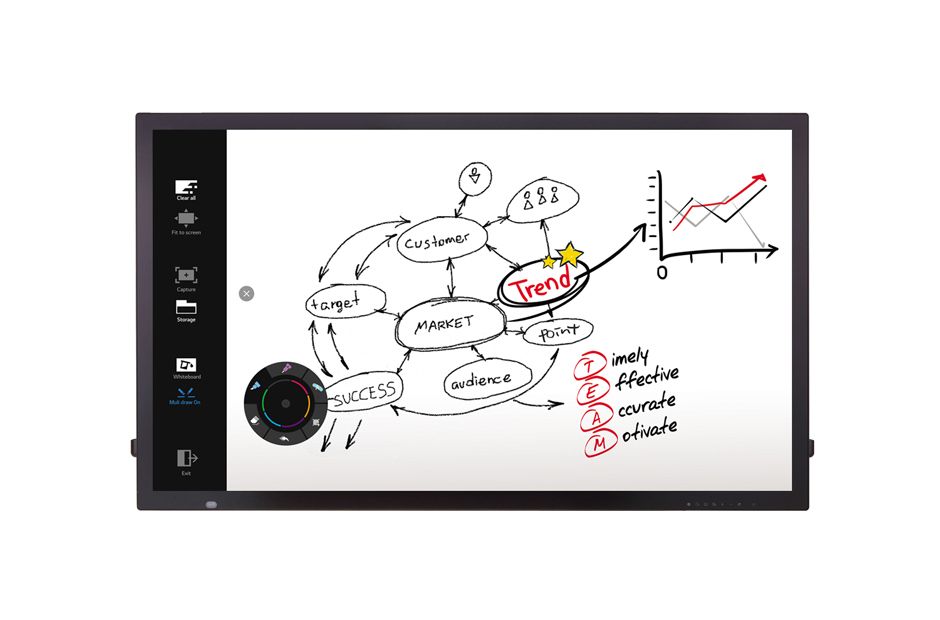 Clear all
Fit to screen
Capture
Storage
Whiteboard
Mult draw On
Exit
Customer
Trend
target
MARKET
point
audience
SUCCESS
0
Timely
Effective
Accurate
Motivate